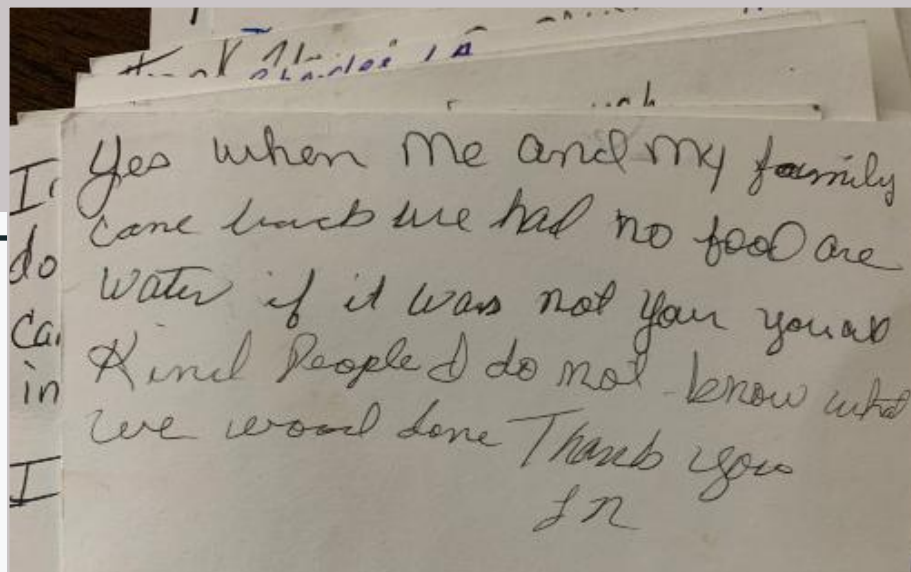 Yes when me and my family
came back we had no food are
water if it was not your
Kind People I do not know what
we woud done Thank you
I
do
in
I